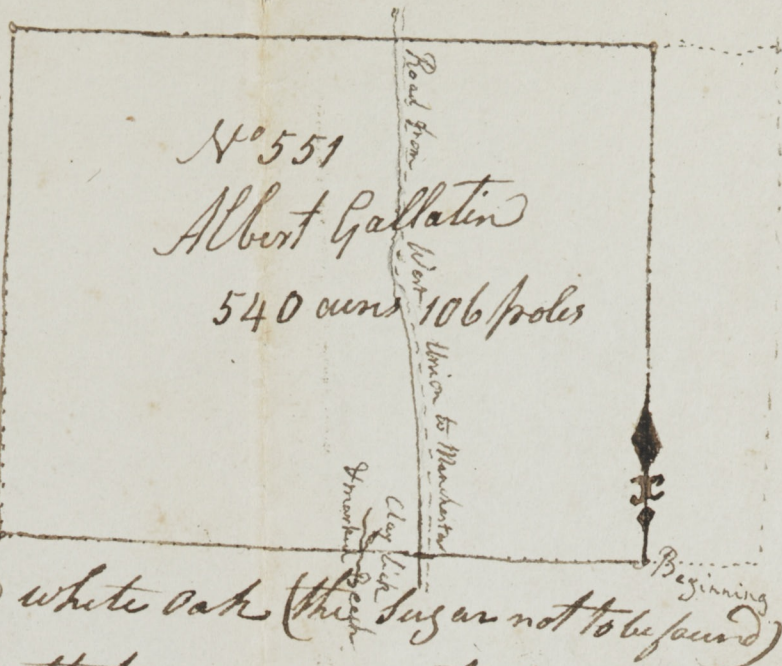 No 551
Albert Gallatin
540 acres 106 poles
Road from West Union to Manchester
Clay lick
& marked Beech
Beginning
white oak (the Sugar not to be found)